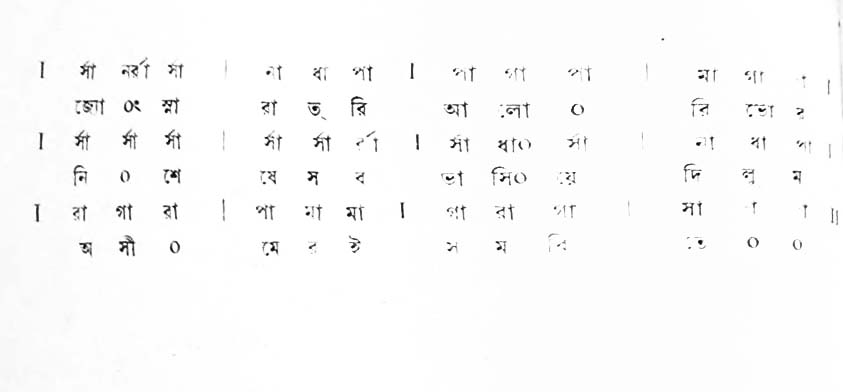 I র্সা নর্রা র্সা | না ধা পা I পা গা পা | মা গা া I
জ্যো ০ৎ স্না রা ত্ রি আ লো ০ রি ভো র
I র্সা র্সা র্সা | র্সা র্সা র্রা I র্সা ধা০ র্সা | না ধা পা I
নি ০ শে ষে স ব ভা সি০ য়ে দি লু ম
I রা গা রা | পা মা মা I গা রা গা | সা া া II
অ সী ০ মে র ই স ম রি তে ০ ০